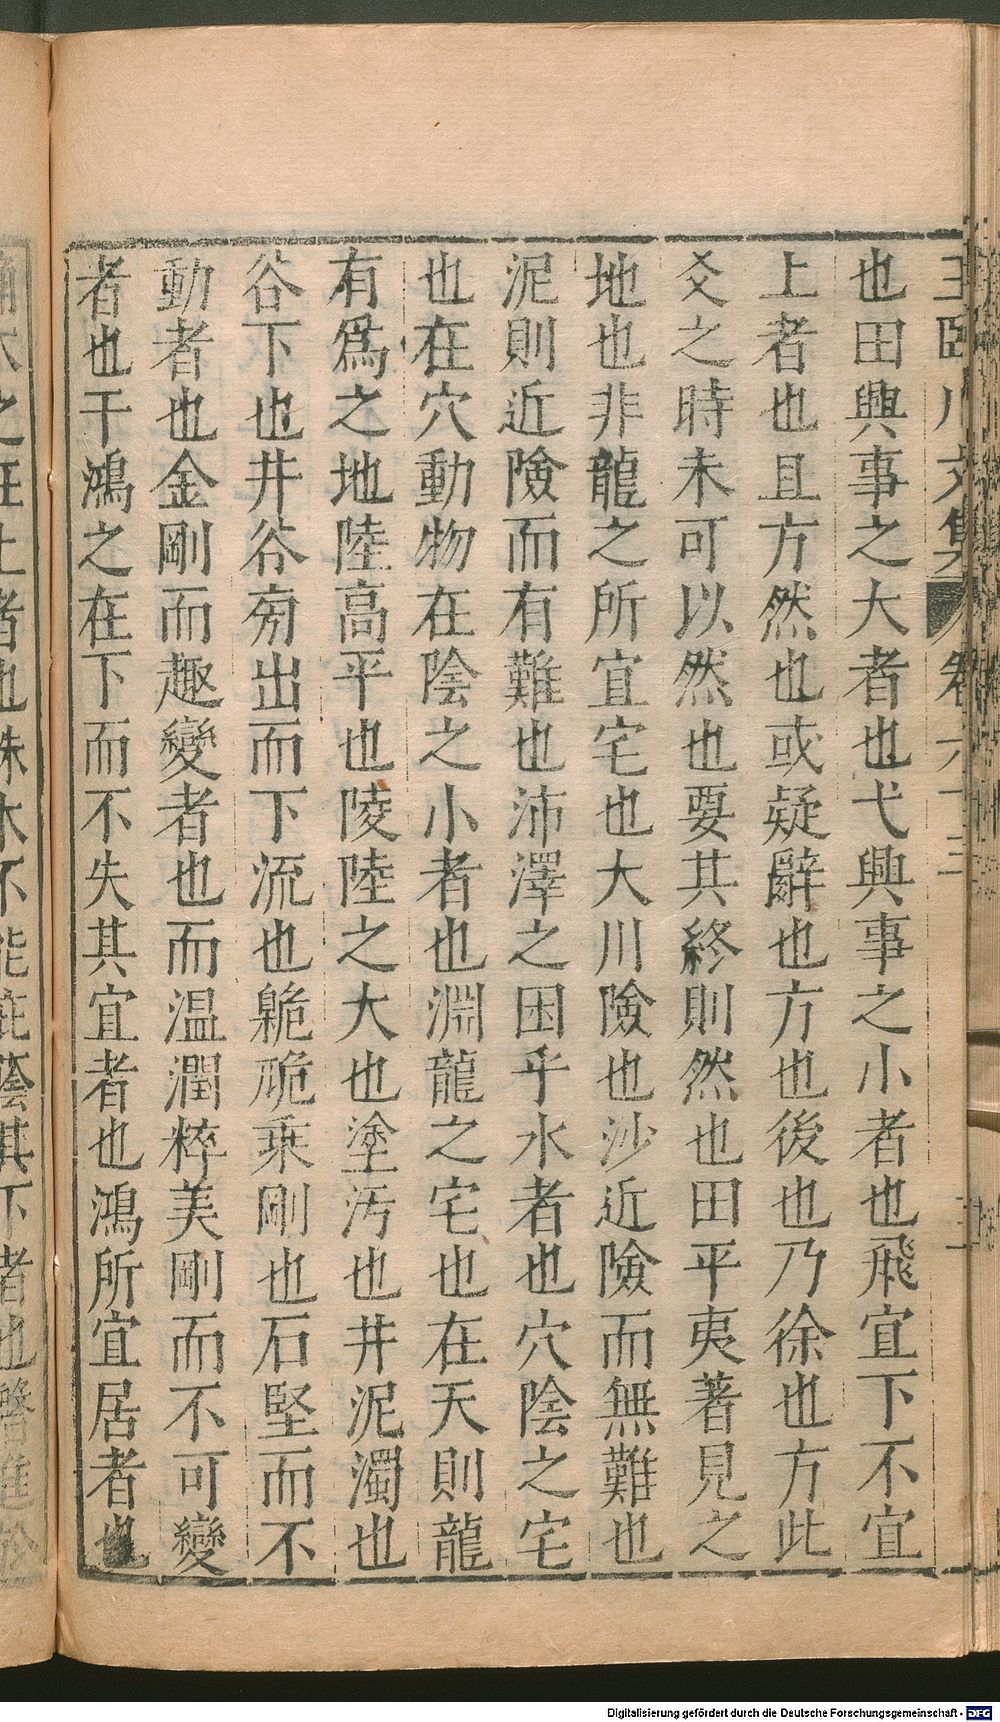 王臨川文集 卷六十三
也田興事之大者也弋興事之小者也飛宜下不宜
上者也且方然也或疑辭也方也後也乃徐也方此
爻之時未可以然也要其終則然也田平夷著見之
地也非龍之所宜宅也大川險也沙近險而無難也
泥則近險而有難也沛澤之困乎水者也穴陰之宅
也在穴動物在陰之小者也淵龍之宅也在天則龍
有爲之地陸高平也陵陸之大也塗汚也井泥濁也
谷下也井谷旁出而下流也臲卼乘剛也石堅而不
動者也金剛而趣變者也而温潤粹美剛而不可變
者也干鴻之在下而不失其宜者也鴻所宜居者也